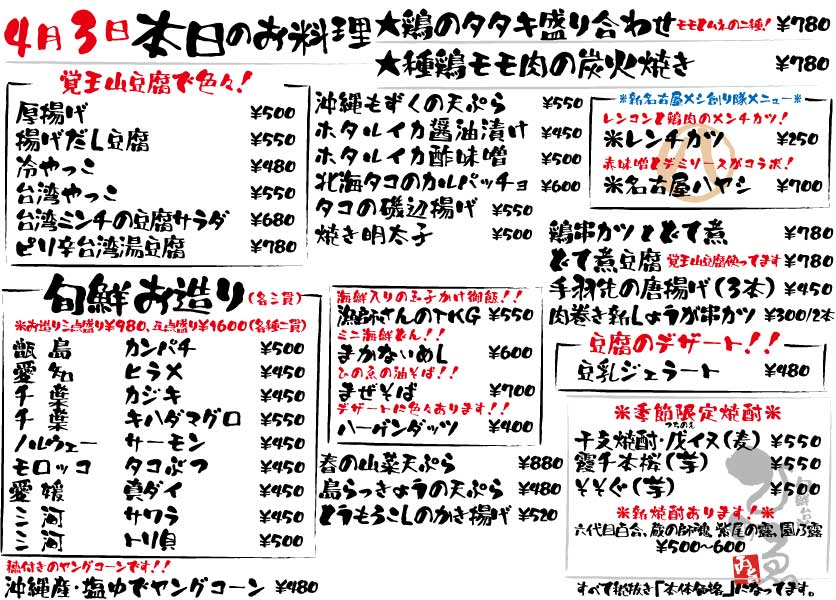 4月3日 本日のお料理
★鶏のタタキ盛り合わせ モモとムネの二種! ¥780
★種鶏モモ肉の炭火焼き ¥780
覚王山豆腐で色々!
厚揚げ ¥500
揚げだし豆腐 ¥550
冷やっこ ¥480
台湾やっこ ¥550
台湾ミンチの豆腐サラダ ¥680
ピリ辛台湾湯豆腐 ¥780
沖縄もずくの天ぷら ¥550
ホタルイカ醤油漬け ¥450
ホタルイカ酢味噌 ¥500
北海タコのカルパッチョ ¥600
タコの磯辺揚げ ¥550
焼き明太子 ¥500
※新名古屋メシ創り隊メニュー※
レンコンと鶏肉のメンチカツ!
※レンチカツ ¥250
赤味噌とデミソースがコラボ!
※名古屋ハヤシ ¥700
鶏串カツとどて煮 ¥780
どて煮豆腐 覚王山豆腐使ってます ¥780
手羽先の唐揚げ(3本) ¥450
肉巻き新しょうが串カツ ¥300/2本
旬鮮お造り(名ニ貫)
※お造り三点盛り¥980、五点盛り¥1600(名種二貫)
甑島 カンパチ ¥500
愛知 ヒラメ ¥450
千葉 カジキ ¥450
千葉 キハダマグロ ¥550
ノルウェー サーモン ¥450
モロッコ タコぶつ ¥450
愛媛 真ダイ ¥450
三河 サワラ ¥450
三河 トリ貝 ¥500
穂付きのヤングコーンです!!
沖縄産・塩ゆでヤングコーン ¥480
海鮮入りの玉子かけ御飯!!
漁師さんのTKG ¥550
ミニ海鮮どん!!
まかないめし ¥600
ひの魚の油そば!!
まぜそば ¥700
デザートに色々あります!!
ハーゲンダッツ ¥400
春の山菜天ぷら ¥880
島らっきょうの天ぷら ¥480
とうもろこしのかき揚げ ¥520
豆腐のデザート!!
豆乳ジェラート ¥480
※季節限定焼酎※
つちのえ
干支焼酎・戊イヌ(麦) ¥550
霞千本桜(芋) ¥550
そそぐ(芋) ¥500
※新焼酎あります!※
六代目百合、蔵の師魂、紫尾の露、園乃露
¥500~600
すべて税抜き「本体価格」になってます。